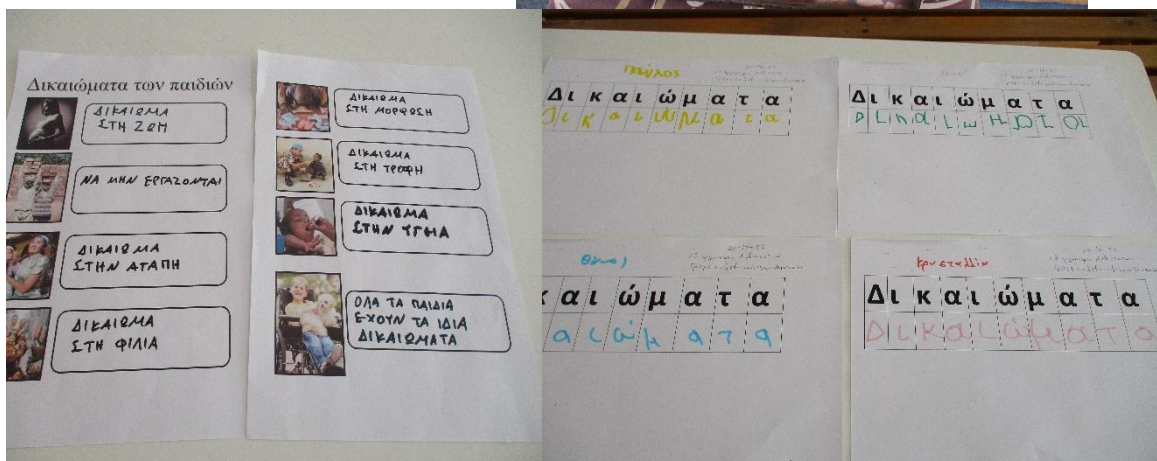 Δικαιώματα των παιδιών
ΔΙΚΑΙΩΜΑ
ΣΤΗ ΖΩΗ
ΝΑ ΜΗΝ ΕΡΓΑΖΟΝΤΑΙ
ΔΙΚΑΙΩΜΑ
ΣΤΗΝ ΑΓΑΠΗ
ΔΙΚΑΙΩΜΑ
ΣΤΗ ΦΙΛΙΑ
ΔΙΚΑΙΩΜΑ
ΣΤΗ ΜΟΡΦΩΣΗ
ΔΙΚΑΙΩΜΑ
ΣΤΗ ΤΡΟΦΗ
ΔΙΚΑΙΩΜΑ
ΣΤΗΝ ΥΓΕΙΑ
ΟΛΑ ΤΑ ΠΑΙΔΙΑ
ΕΧΟΥΝ ΤΑ ΙΔΙΑ
ΔΙΚΑΙΩΜΑΤΑ
Δικαιώματα
Δικαιωματα
Δικαιώματα
Δικαιωματα
καιώματα
αιώματα
Κρυσταλλία
Δικαιώματα
Δικαιώματα